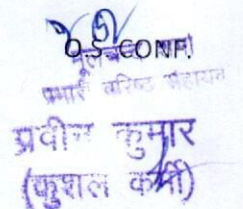 O.S. CONF.
प्रभारी वरिष्ठ सहायक
प्रवीन कुमार
(कुशल कर्मी)